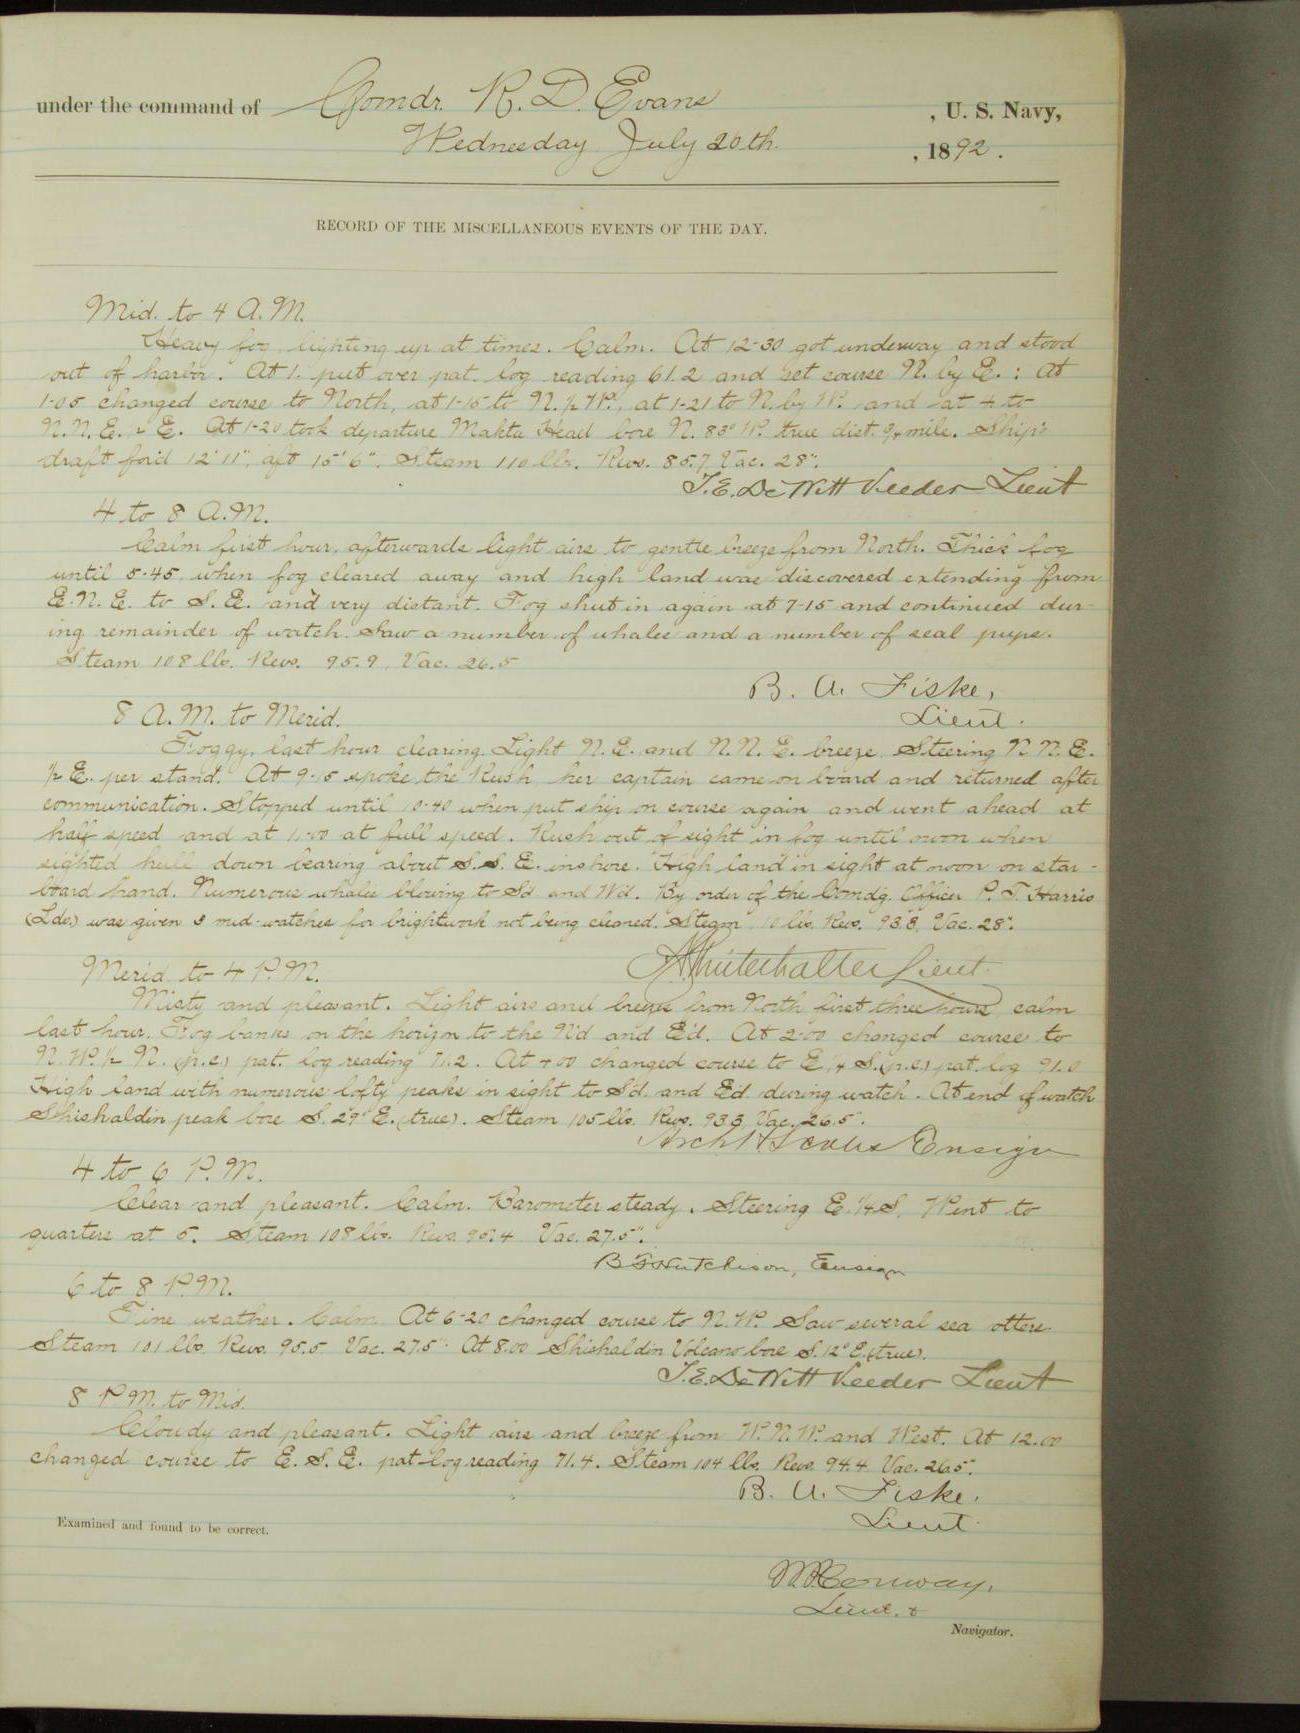 under the command of Comdr. R. D. Evans, U. S. Navy,
Wednesday July 20th. , 1892.
RECORD OF THE MISCELLANEOUS EVENTS OF THE DAY.
Mid. to 4 A.M.
Heavy fog, lighting up at times. Calm. At 12-30 got underway and stood
out of harbor. At 1. put over pat. log reading 61.2 and set course N. by E. : At
1-05 changed course to North, at 1-15 to N. ½ W., at 1-21 to N. by W. and at 4 to
N.N.E. ½ E. At 1-20 took departure Head bore N. 83° W. true dist. ¾ mile. Ship's
draft for'd 12' 11", aft 15' 6". Steam 110 lbs. Revs. 85.7 Vac. 28".
T.E. DeWitt Veeder Lieut
4 to 8 A.M.
Calm first hour, afterwards light airs to gentle breeze from North. Thick fog
until 5-45, when fog cleared away and high land was discovered extending from
E.N.E. to S.E. and very distant. Fog shut in again at 7-15 and continued dur-
ing remainder of watch. Saw a number of whales and a number of seal pups.
Steam 108 lbs. Revs. 95.9, Vac. 26.5
B. A. Fiske,
Lieut.
8 A.M. to Merid.
Foggy, last hour clearing. Light N.E. and N.N.E. breeze. Steering N.N.E.
½ E. per stand. At 9-15 spoke the Rush her captain came on board and returned after
communication. Stopped until 10-40 when put ship on course again and went ahead at
half speed and at 11-00 at full speed. Rush out of sight in fog until noon when
sighted hull down bearing about S.S.E. inshore. High land in sight at noon on star-
board hand. Numerous whales blowing to S'd and W'd. By order of the Comdg. Officer P. T. Harris
(Lds.) was given 3 mid-watches for brightwork not being cleaned. Steam lbs. Revs. 93.8, Vac. 28".
Lieut.
Merid. to 4 P.M.
Misty and pleasant. Light airs and breeze from North first three hours, calm
last hour. Fog banks on the horizon to the N'd and E'd. At 2-00 changed course to
N.W. ½ N. (p.c.) pat. log reading 71.2. At 4 00 changed course to E ¼ S. (p.c.) pat. log 91.0
High land with numerous lofty peaks in sight to S'd. and E'd during watch. At end of watch
Shishaldin peak bore S. 29° E. (true). Steam 105 lbs. Revs. 93.3, Vac. 26.5".
Arch H Scales Ensign
4 to 6 P.M.
Clear and pleasant. Calm. Barometer steady. Steering E. ¼ S. Went to
quarters at 5. Steam 108 lbs. Revs. 95.4 Vac. 27.5".
B F Hutchison, Ensign
6 to 8 P.M.
Fine weather. Calm. At 6-20 changed course to N.W. Saw several sea otters.
Steam 101 lbs. Revs. 95.5 Vac. 27.5". At 8.00 Shishaldin Volcano bore S. 12° E. (true).
T.E. DeWitt Veeder Lieut
8 P.M. to Mid.
Cloudy and pleasant. Light airs and breeze from W.N.W. and West. At 12.00
changed course to E.S.E. pat-log reading 71.4. Steam 104 lbs. Revs. 94.4 Vac. 26.5".
B. A. Fiske.
Lieut.
Examined and found to be correct.
Conway,
Lieut. &
Navigator.